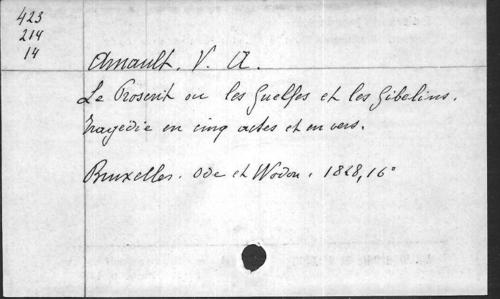 423
214
14
Arnault. V. A.
Le Proscrit ou les Guelfes et les Gibelins.
Tragédie en cinq actes et en vers.
Bruxelles. Ode et Wodon. 1828, 16°